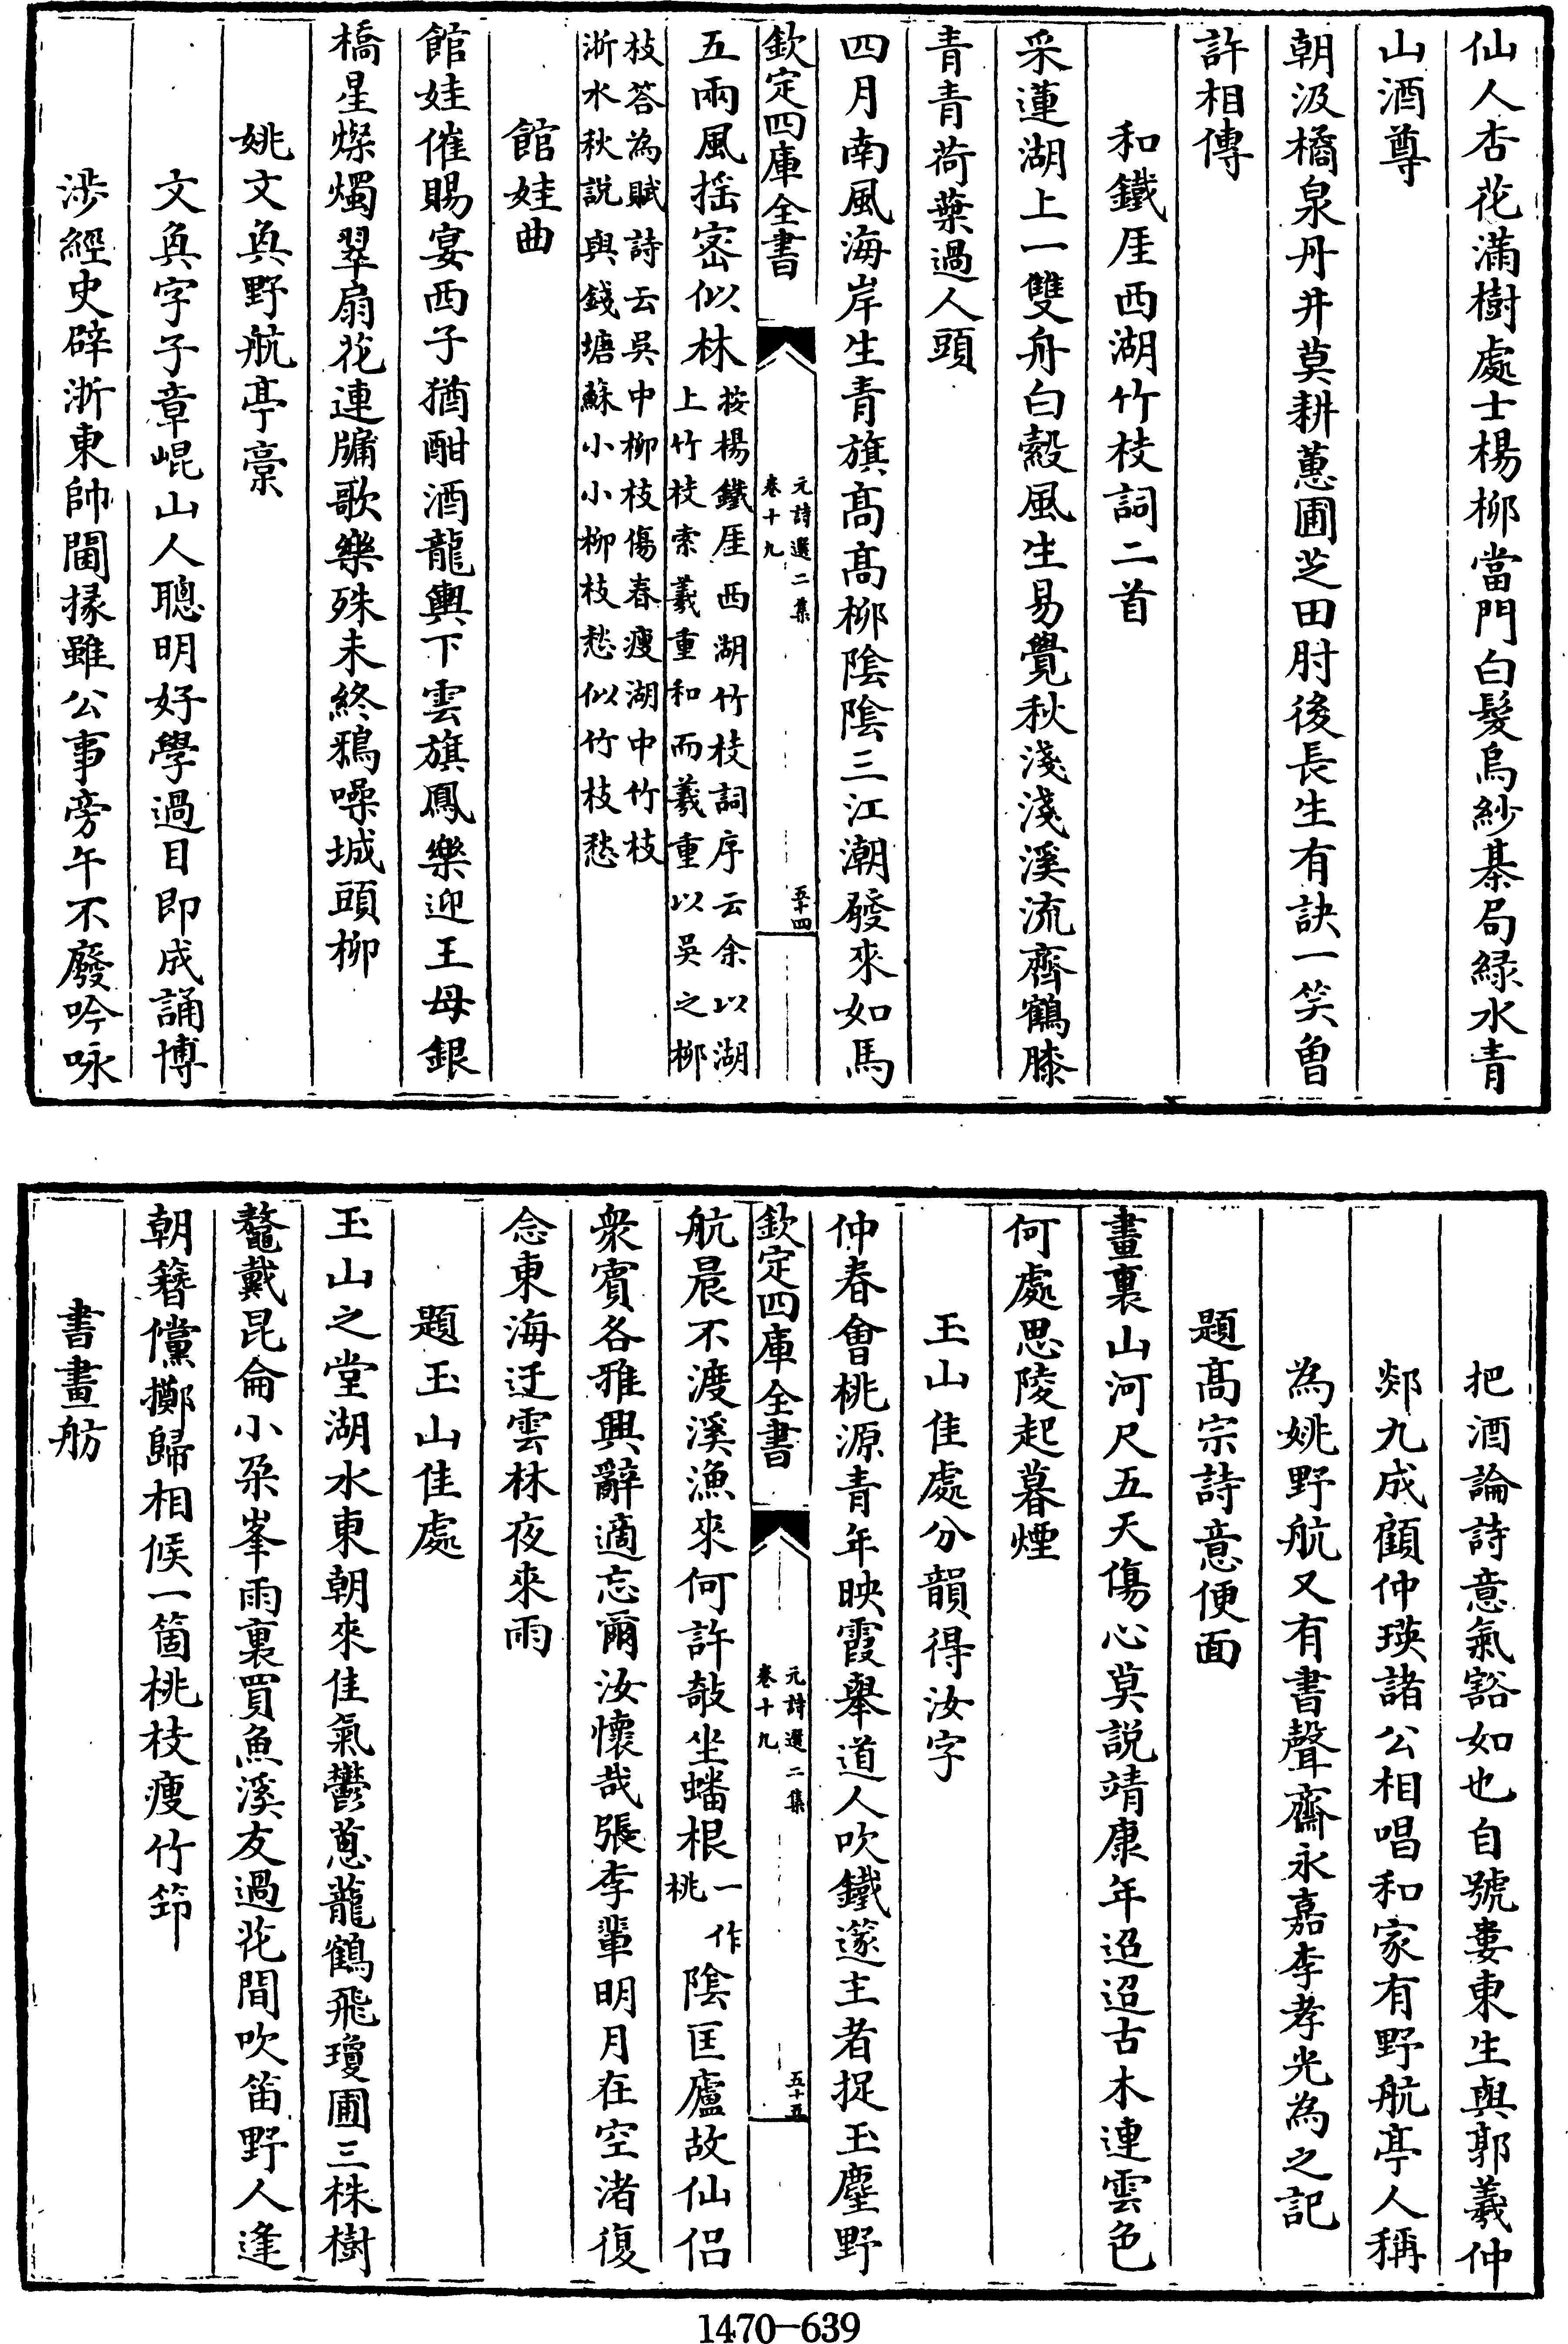 仙人杏花滿樹處士楊柳當門白髮烏紗棊局緑水青
山酒尊
朝汲橘泉丹井莫耕蕙圃芝田肘後長生有訣一笑曾
許相傳
和鐵厓西湖竹枝詞二首
采蓮湖上一雙舟白縠風生易覺秋淺淺溪流齊鶴膝
青青荷葉過人頭
四月南風海岸生青旗髙髙柳隂隂三江潮發來如馬
欽定四庫全書
元詩選二集
卷十九
五十四
五兩風摇密似林按楊鐵厓西湖竹枝詞序云余以湖
上竹枝索羲重和而羲重以吳之柳
枝答為賦詩云吳中柳枝傷春瘦湖中竹枝
浙水秋説與錢塘蘇小小柳枝愁似竹枝愁
館娃曲
館娃催賜宴西子猶酣酒龍輿下雲旗鳳樂迎王母銀
橋星燦燭翠扇花連牗歌樂殊未終鴉噪城頭柳
姚文奐野航亭稾
文奐字子章崐山人聰明好學過目即成誦博
渉經史辟浙東帥閫掾雖公事旁午不廢吟咏
把酒論詩意氣豁如也自號婁東生與郭羲仲
郯九成顧仲瑛諸公相唱和家有野航亭人稱
為姚野航又有書聲齋永嘉李孝光為之記
題髙宗詩意便面
畫裏山河尺五天傷心莫説靖康年迢迢古木連雲色
何處思陵起暮煙
玉山佳處分韻得汝字
仲春會桃源青年映霞舉道人吹鐵篴主者捉玉麈野
欽定四庫全書
元詩選二集
卷十九
五十五
航晨不渡溪漁來何許敧坐蟠根一作
桃隂匡廬故仙侣
衆賓各雅興辭適忘爾汝懷哉張李輩明月在空渚復
念東海迂雲林夜來雨
題玉山佳處
玉山之堂湖水東朝來佳氣鬱葱蘢鶴飛瓊圃三株樹
鼇戴昆侖小朶峯雨裏買魚溪友過花間吹笛野人逢
朝簪儻擲歸相候一箇桃枝瘦竹笻
書畫舫
1470-639